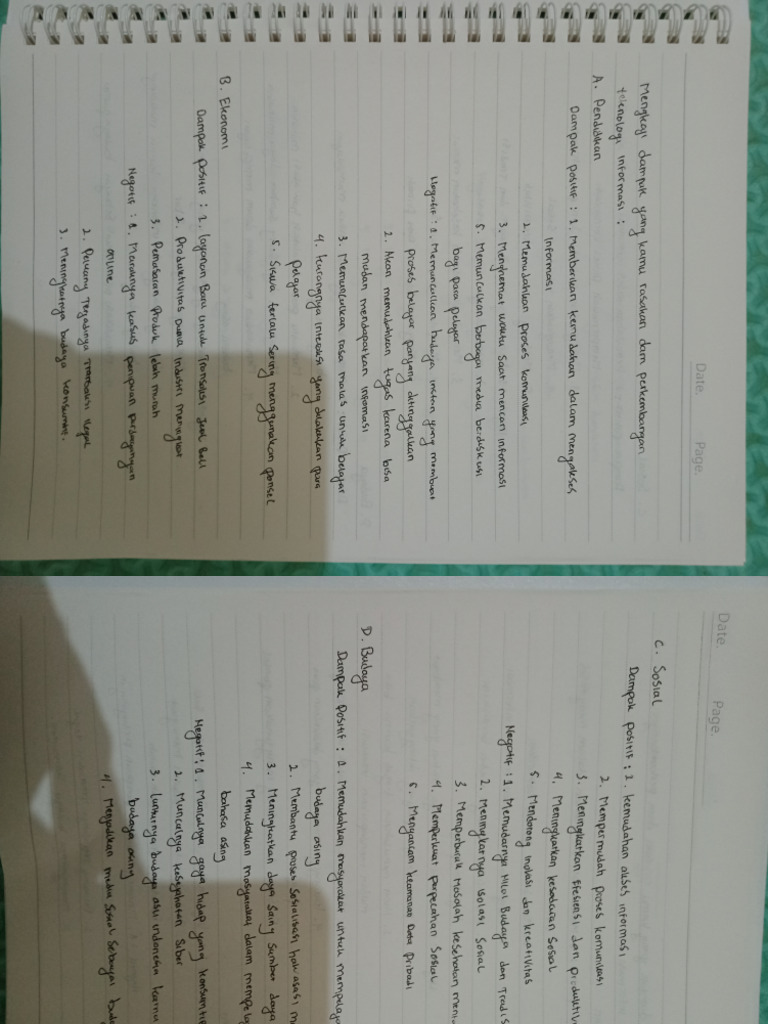 Date. Page.
Mengkaji dampak yang kamu rasakan dari perkembangan
teknologi informasi :
A. Pendidikan
Dampak positif : 1. Memberikan kemudahan dalam mengakses
Informasi
2. Memudahkan proses komunikasi
3. Menghemat waktu saat mencari informasi
5. Memunculkan berbagai media berdiskusi
bagi para pelajar
Negatif : 1. Memunculkan budaya instan yang membuat
proses belajar panjang ditinggalkan
2. Akan memudahkan tugas karena bisa
mudah mendapatkan informasi
3. Memunculkan rasa malas untuk belajar
4. kurangnya interaksi yang dilakukan para
pelajar
5. Siswa terlalu sering menggunakan ponsel
B. Ekonomi
Dampak positif : 1. layanan Baru untuk Transaksi Jual Beli
2. Produktivitas Dunia Industri meningkat
3. Pemasaran Produk lebih murah
Negatif : 1. Maraknya kasus penipuan perdagangan
online
2. Peluang Terjadinya Transaksi Ilegal
3. Meningkatnya budaya konsumtif.
Date. Page.
C. Sosial
Dampak positif : 1. kemudahan akses informasi
2. Mempermudah proses komunikasi
3. Meningkatkan Efesiensi dan produktiv
4. Meningkatkan kesadaran Sosial
5. Mendorong inovasi dan kreativitas
Negatif : 1. Memudarnya Nilai Budaya dan Tradis
2. Meningkatnya isolasi Sosial
3. Memperburuk Masalah kesehatan menta
4. Memperkuat perpecahan Sosial
5. Mengancam keamanan Data Pribadi
D. Budaya
Dampak Positif : 1. Memudahkan masyarakat untuk mempelaja
budaya asing
2. Membantu proses Sosialisasi hak asasi m
3. Meningkatkan daya Saing Sumber daya
4. Memudahkan masyarakat dalam mempela
bahasa asing
Negatif : 1. Munculnya gaya hidup yang konsumtif
2. Munculnya kejahatan Siber
3. Lunturnya budaya asli indonesia karna
budaya asing
4. Menjadikan media Sosial Sebagai buda